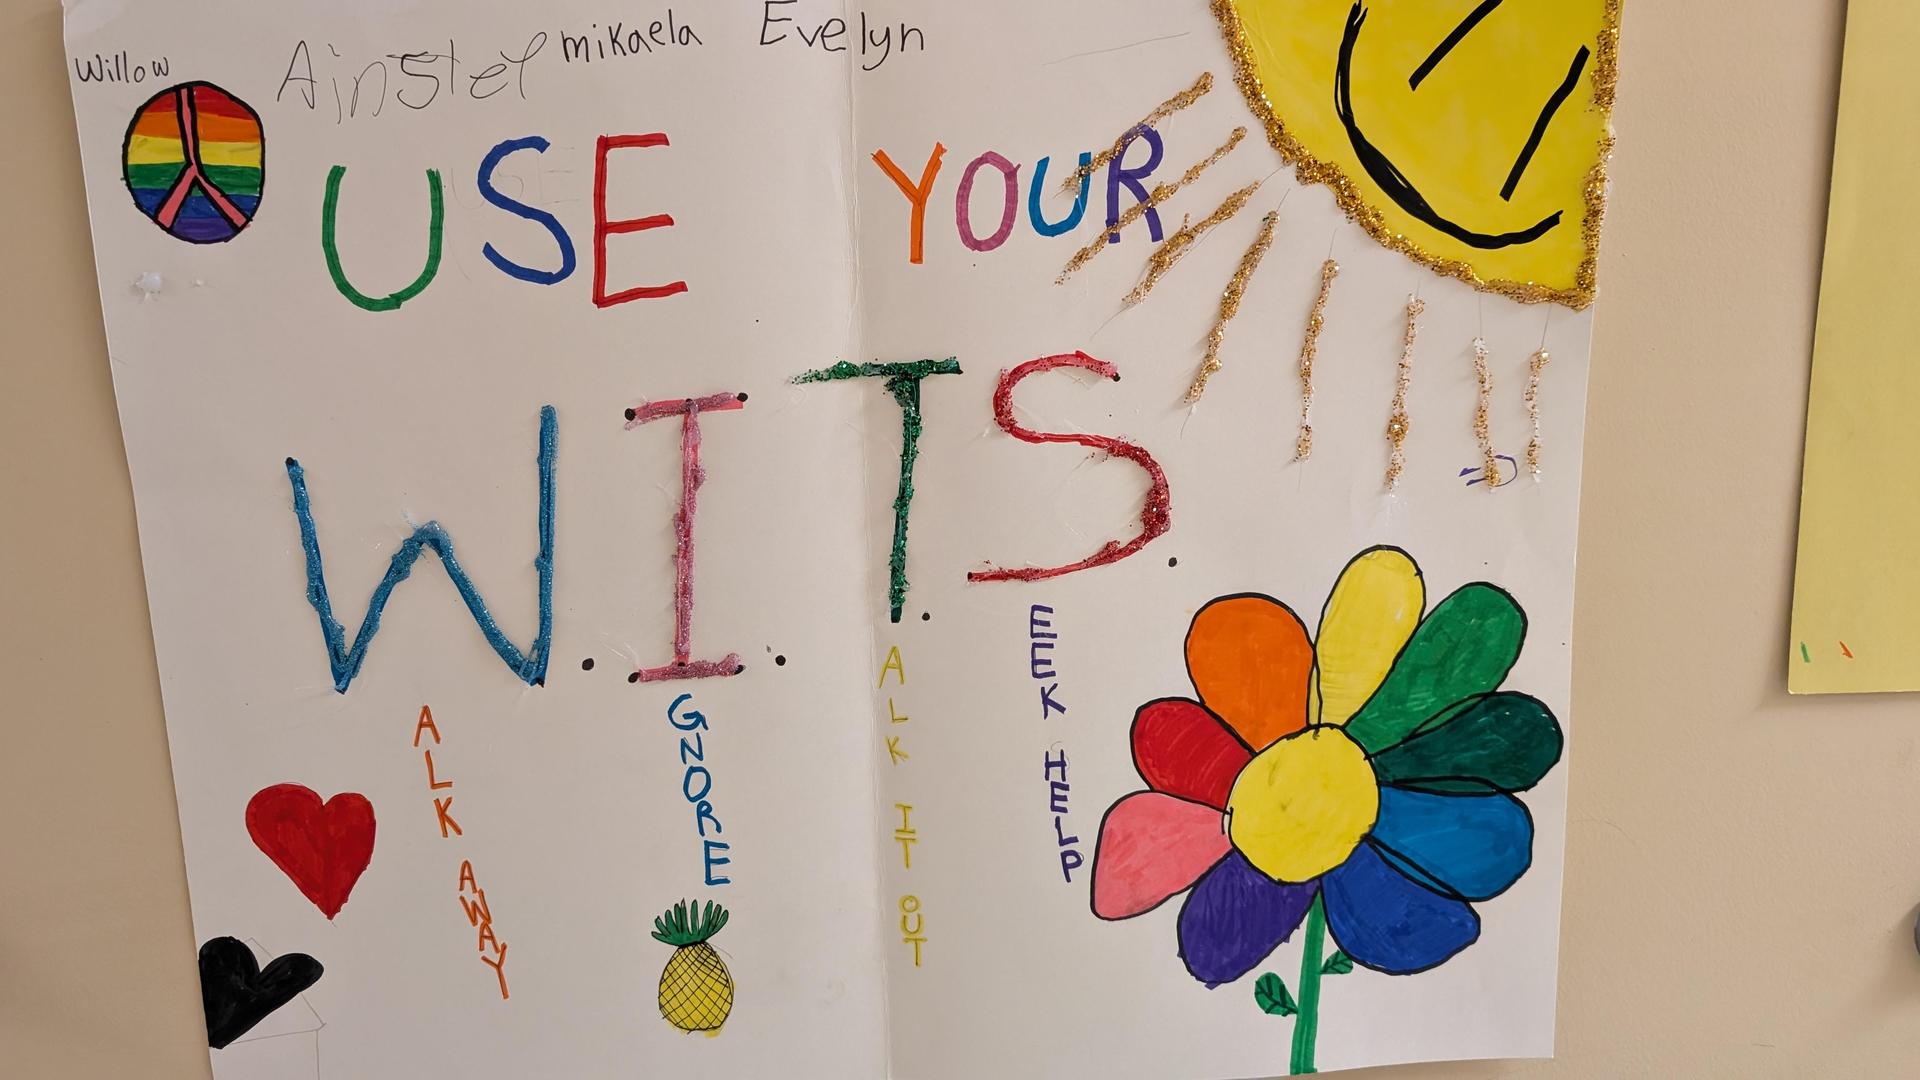 Willow Ainsley mikaela Evelyn
USE YOUR
W.I.T.S.
ALK AWAY
GNORE
ALK IT OUT
EEK HELP